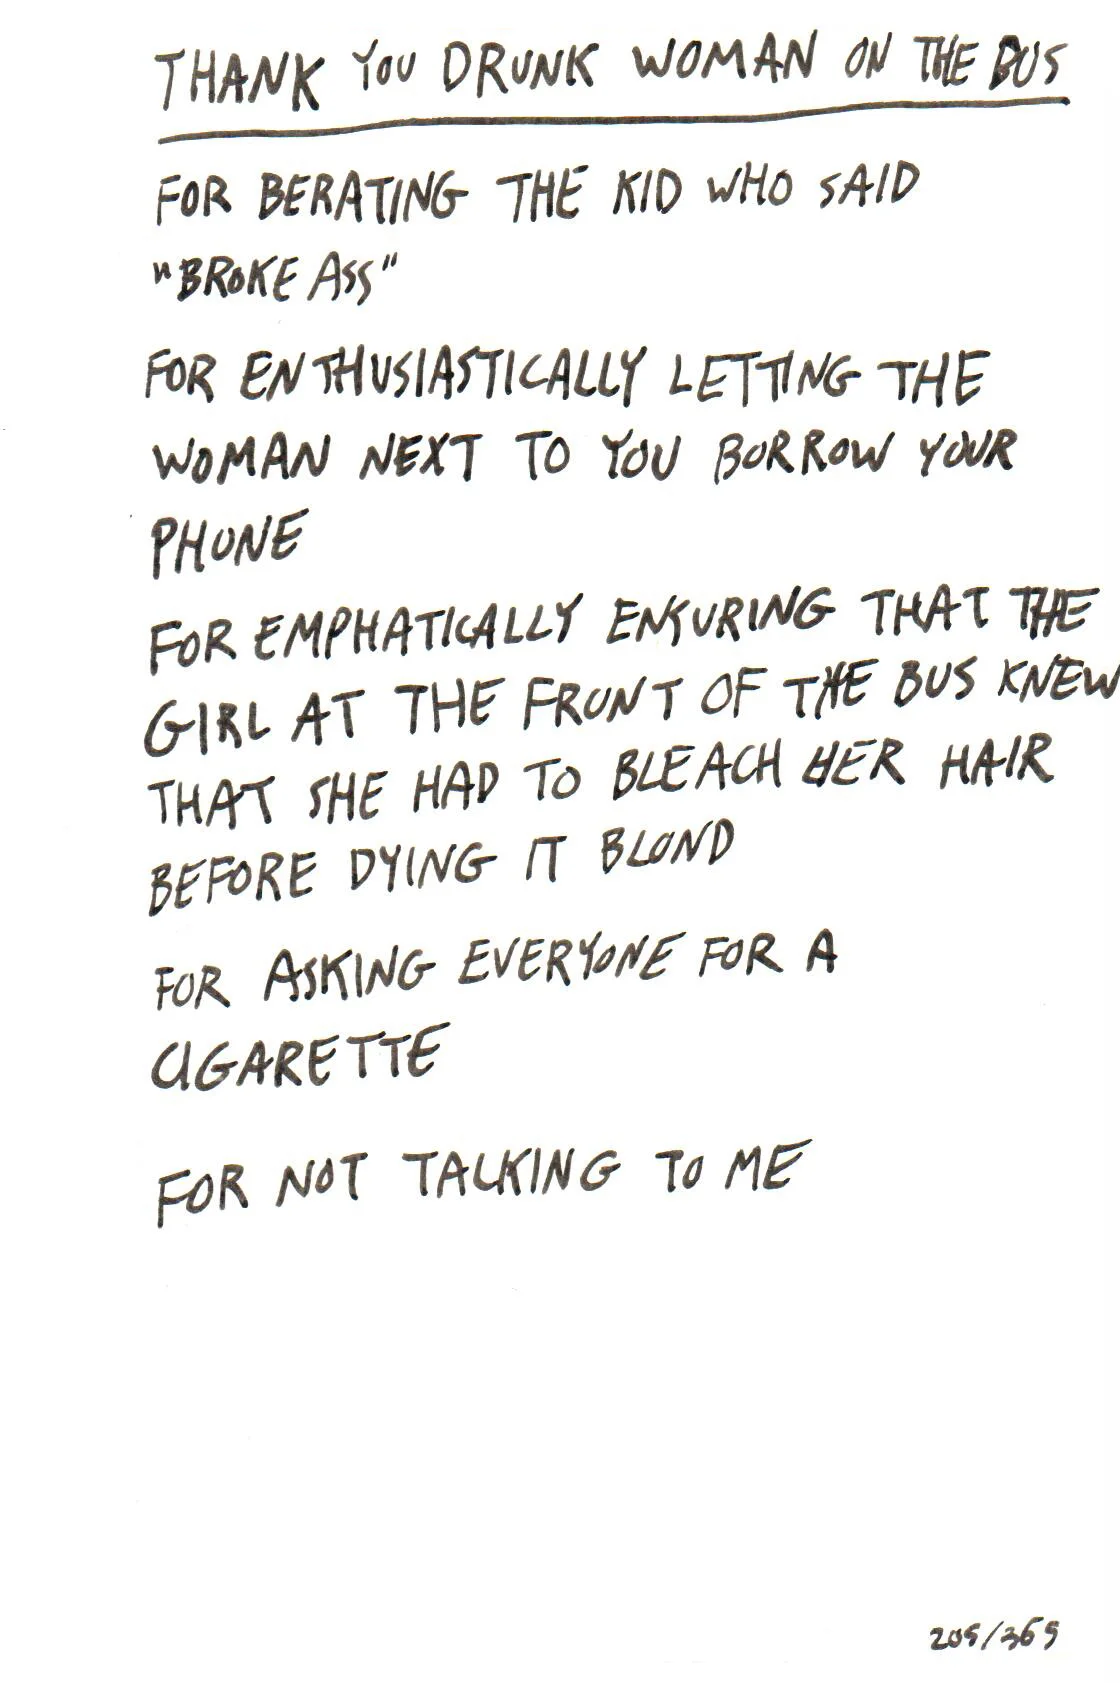 THANK YOU DRUNK WOMAN ON THE BUS
FOR BERATING THE KID WHO SAID
"BROKE ASS"
FOR ENTHUSIASTICALLY LETTING THE
WOMAN NEXT TO YOU BORROW YOUR
PHONE
FOR EMPHATICALLY ENSURING THAT THE
GIRL AT THE FRONT OF THE BUS KNEW
THAT SHE HAD TO BLEACH HER HAIR
BEFORE DYING IT BLOND
FOR ASKING EVERYONE FOR A
CIGARETTE
FOR NOT TALKING TO ME
205/365